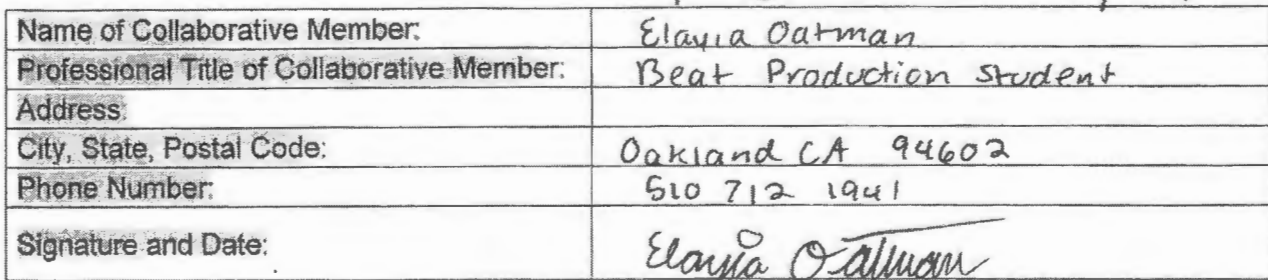 Name of Collaborative Member: Elayia Oatman
Professional Title of Collaborative Member: Beat Production Student
Address:
City, State, Postal Code: Oakland CA 94602
Phone Number: 510 712 1941
Signature and Date: Elayia Oatman